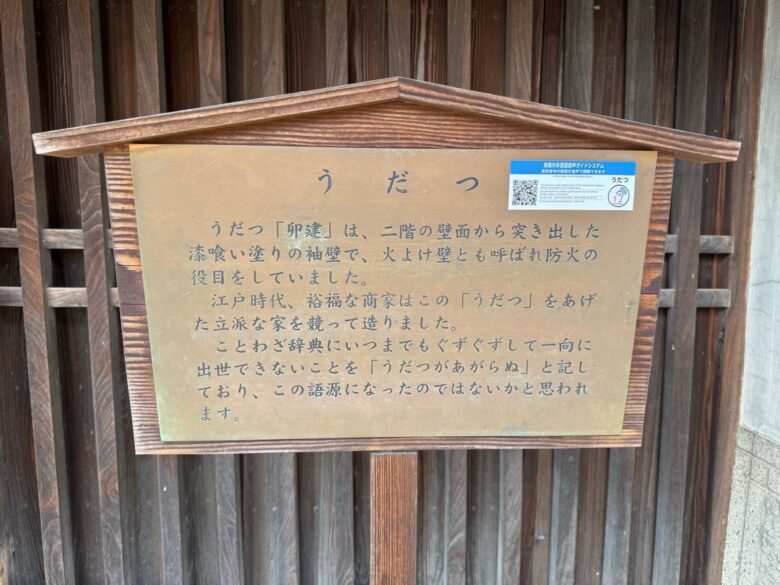 うだつ
うだつ「卯建」は、二階の壁面から突き出した
漆喰い塗りの袖壁で、火よけ壁とも呼ばれ防火の
役目をしていました。
江戸時代、裕福な商家はこの「うだつ」をあげ
た立派な家を競って造りました。
ことわざ辞典にいつまでもぐずぐずして一向に
出世できないことを「うだつがあがらぬ」と記し
ており、この語源になったのではないかと思われ
ます。
うだつ
1